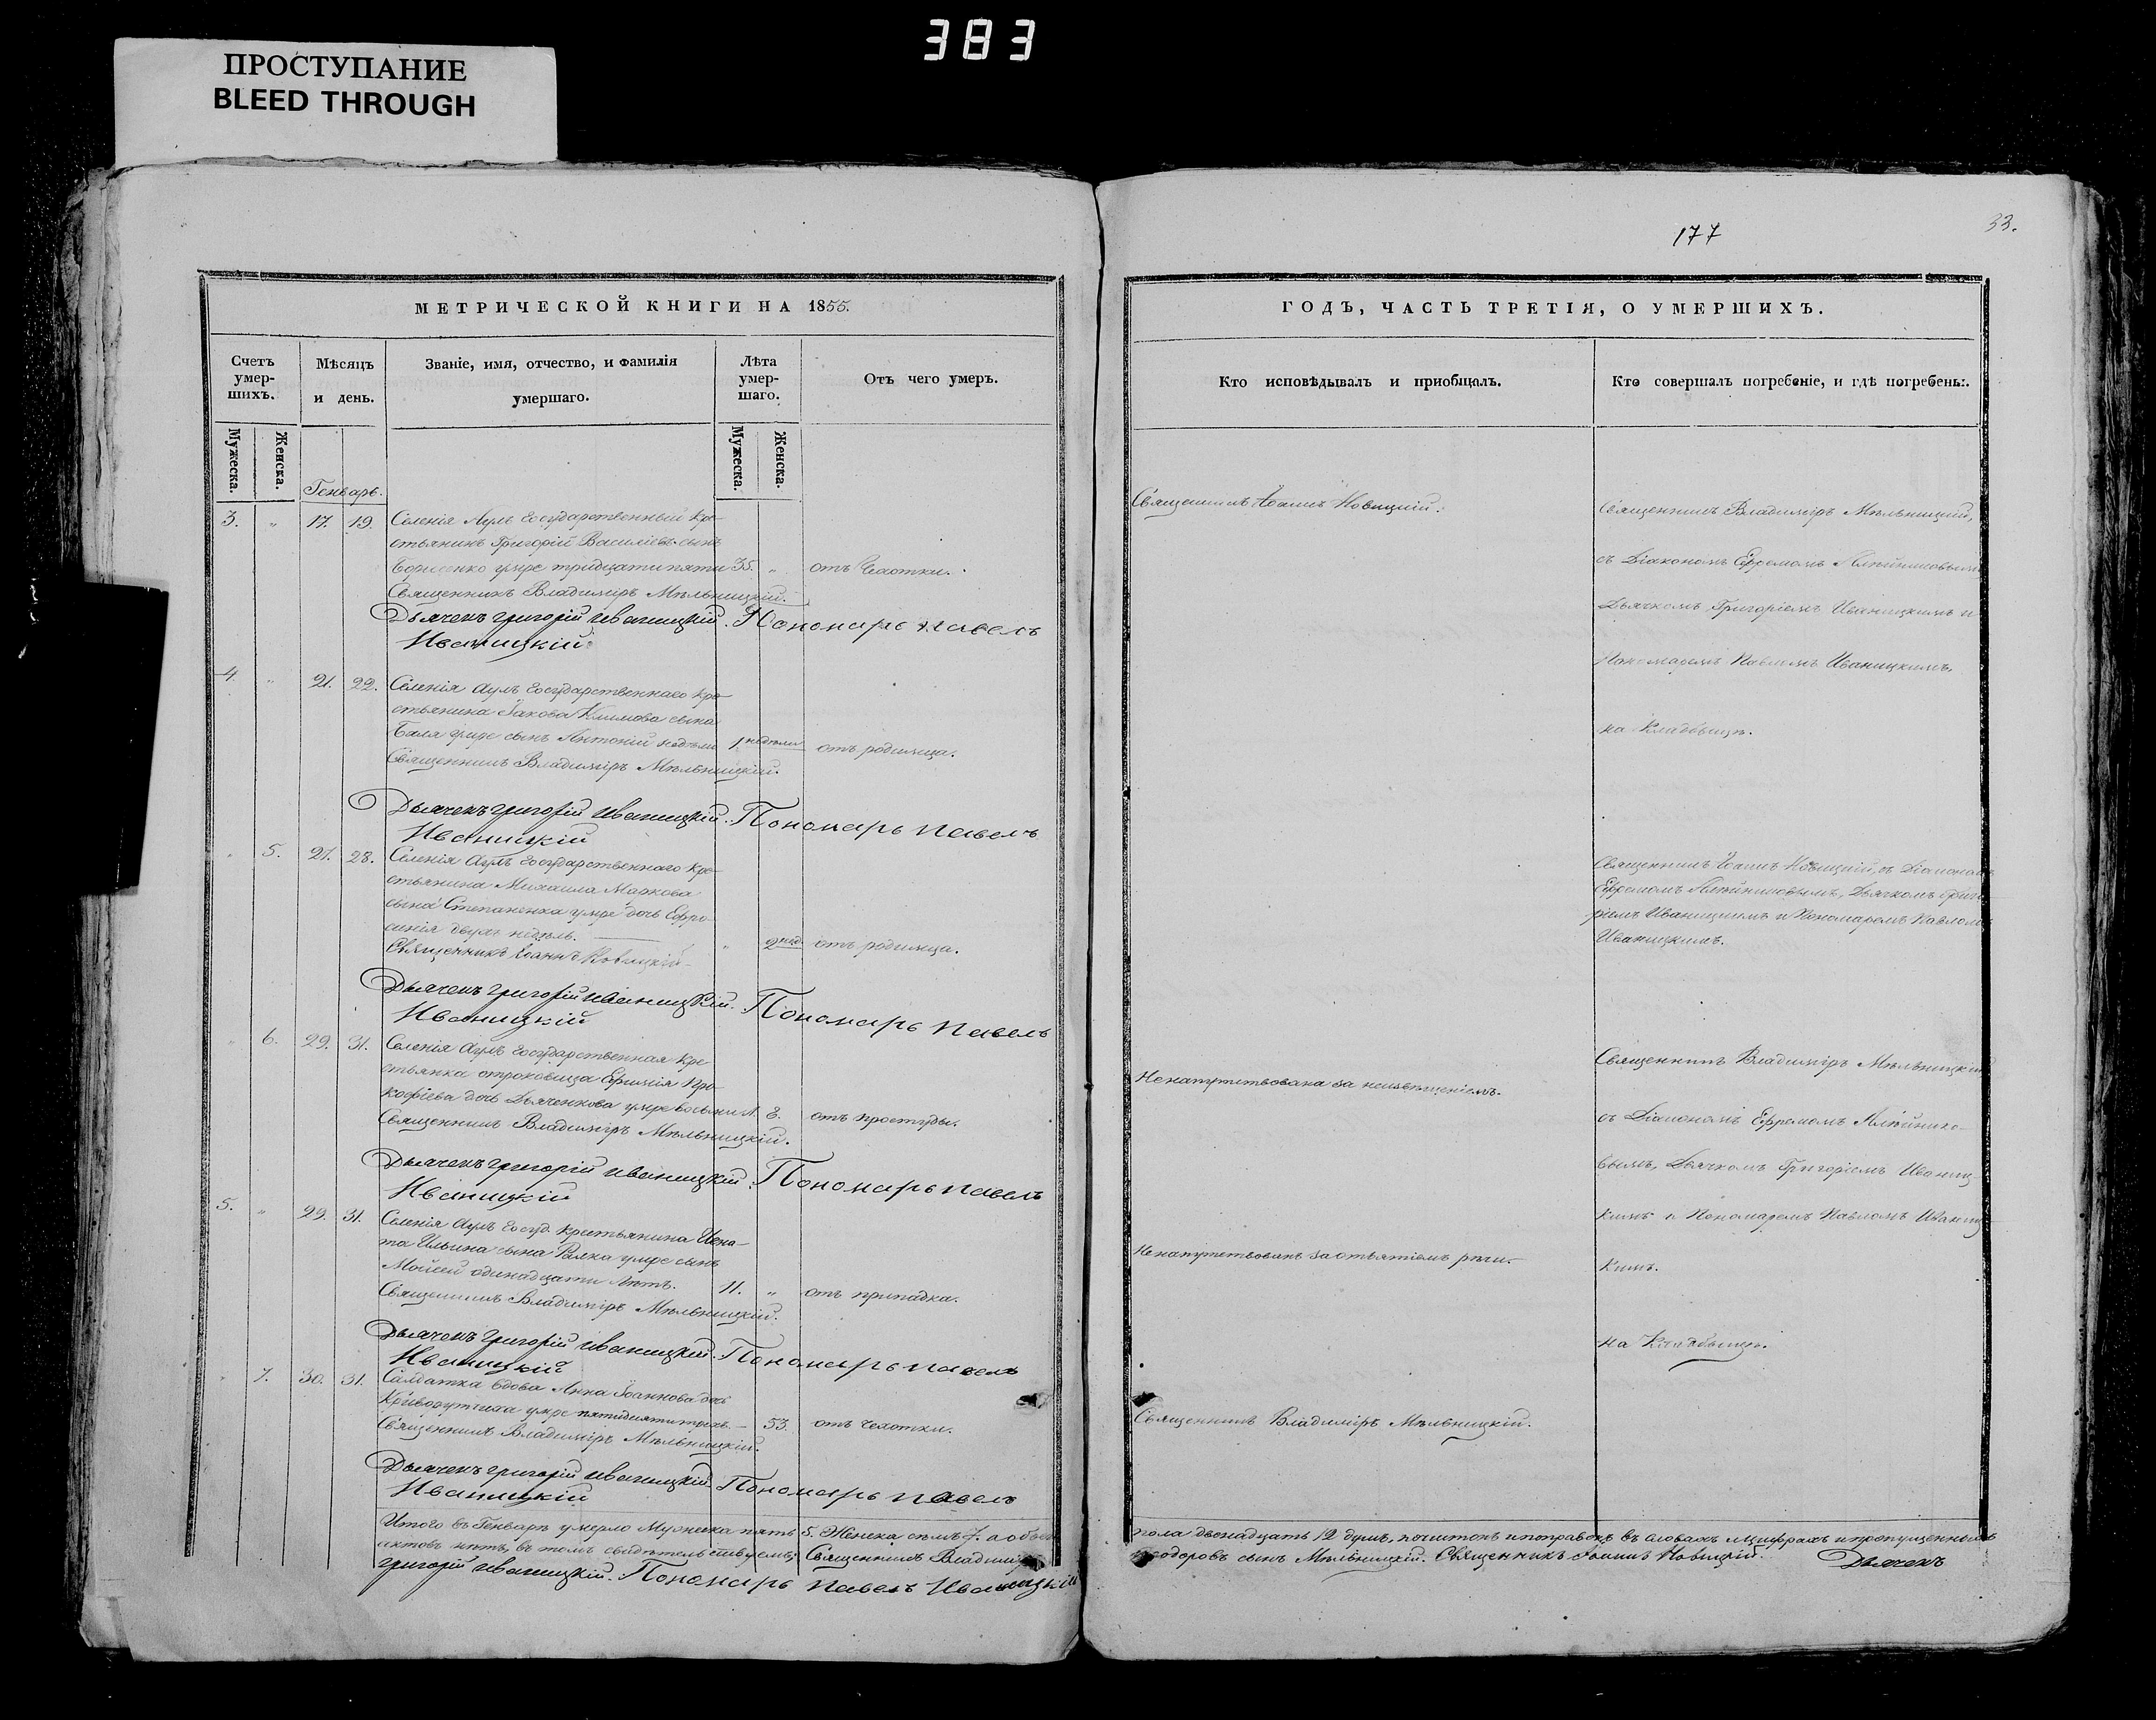 383
ПРОСТУПАНИЕ
BLEED THROUGH
177
33.
МЕТРИЧЕСКОЙ КНИГИ НА 1855.
Счетъ умер-шихъ.
Мѣсяцъ и день.
Званіе, имя, отчество, и фамилія умершаго.
Лѣта умер-шаго.
Отъ чего умеръ.
Мужеска.
Женска.
Мужеска.
Женска.
Генварь.
3. " 17. 19. Селенія Аулъ государственный кре-
стьянинъ Григорій Васильевъ сынъ
умре тридцати пяти 35. " отъ чахотки.
Священникъ Владиміръ Мѣльницкій.
Дьячекъ Григорій Иваницкій. Пономарь Павелъ
Иваницкій
4. " 21. 22. Селенія Аулъ государственнаго кре-
стьянина Іакова Климова сына
умре сынъ Антоній недѣли 1 недѣли отъ родимца.
Священникъ Владиміръ Мѣльницкій.
Дьячекъ Григорій Иваницкій. Пономарь Павелъ
Иваницкій
" 5. 27. 28. Селенія Аулъ государственнаго кре-
стьянина Михаила Маркова
сына Степаненка умре дочь Евфро-
синія двухъ недѣль. " 2 нед. отъ родимца.
Священникъ Іоаннъ Новицкій
Дьячекъ Григорій Иваницкій. Пономарь Павелъ
Иваницкій
" 6. 29. 31. Селенія Аулъ государственная кре-
стьянка отроковица Ефимія Про-
кофіева дочь Дьяченкова умре восьми л. 8. отъ простуды.
Священникъ Владиміръ Мѣльницкій.
Дьячекъ Григорій Иваницкій. Пономарь Павелъ
Иваницкій
5. " 29. 31. Селенія Аулъ госуд. крестьянина Игна-
та Ильина сына умре сынъ
Мойсей одинадцати лѣтъ. 11. " отъ припадка.
Священникъ Владиміръ Мѣльницкій.
Дьячекъ Григорій Иваницкій. Пономарь Павелъ
Иваницкій
" 7. 30. 31. Салдатка вдова Анна Іоаннова дочь
умре пятидесяти трехъ 53. отъ чахотки.
Священникъ Владиміръ Мѣльницкій.
Дьячекъ Григорій Иваницкій. Пономарь Павелъ
Иваницкій
Итого въ Генварѣ умерло Мужеска пять 5. Женска семь 7. а обоего
актовъ нѣтъ, въ томъ свидѣтельствуемъ: Священникъ Владиміръ
Григорій Иваницкій. Пономарь Павелъ Иваницкій
ГОДЪ, ЧАСТЬ ТРЕТІЯ, О УМЕРШИХЪ.
Кто исповѣдывалъ и пріобщалъ.
Кто совершалъ погребеніе, и гдѣ погребены.
Священникъ Іоаннъ Новицкій.
Священникъ Владиміръ Мѣльницкій,
съ Діакономъ Ефремомъ
Дьячкомъ Григоріемъ Иваницкимъ и
Пономаремъ Павломъ Иваницкимъ,
на кладбищѣ.
Священникъ Іоаннъ Новицкій, съ Діакономъ
Ефремомъ Дьячкомъ Григо-
ріемъ Иваницкимъ и Пономаремъ Павломъ
Иваницкимъ.
Не напутствована за неизвѣщеніемъ.
Священникъ Владиміръ Мѣльницкій
съ Діакономъ Ефремомъ
вымъ, Дьячкомъ Григоріемъ Иваниц-
кимъ и Пономаремъ Павломъ Иваниц-
кимъ.
Не напутствованъ за отъятіемъ рѣчи.
на кладбищѣ.
Священникъ Владиміръ Мѣльницкій.
пола двенадцать 12 душъ, почистокъ и поправокъ въ словахъ и цифрахъ и пропущенныхъ
Феодоровъ сынъ Мѣльницкій. Священникъ Іоаннъ Новицкій. Дьячекъ